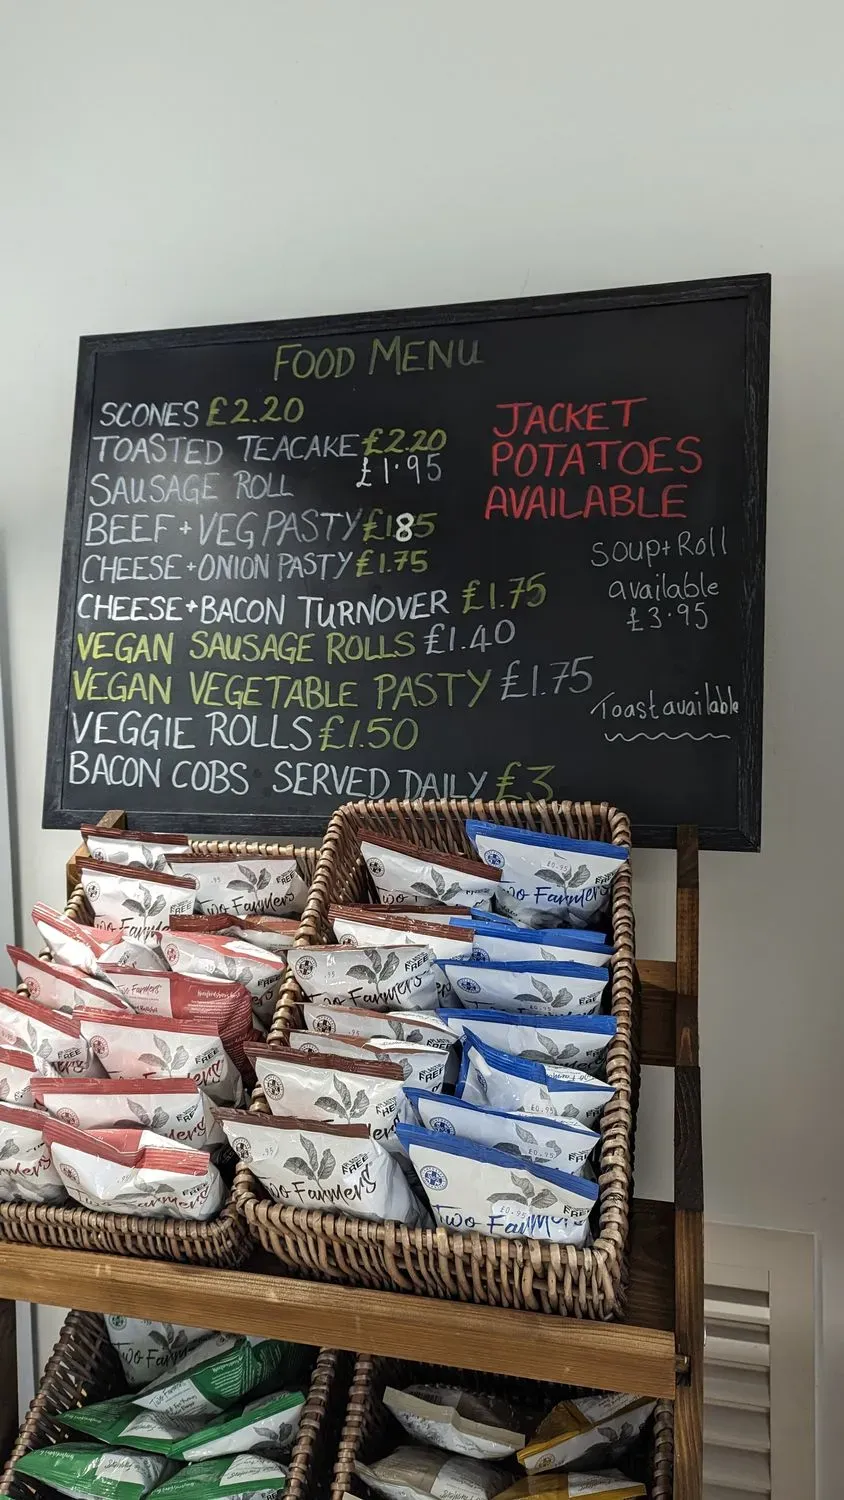 FOOD MENU
SCONES £2.20
TOASTED TEACAKE £2.20
SAUSAGE ROLL £1.95
BEEF + VEG PASTY £1.85
CHEESE + ONION PASTY £1.75
CHEESE + BACON TURNOVER £1.75
VEGAN SAUSAGE ROLLS £1.40
VEGAN VEGETABLE PASTY £1.75
VEGGIE ROLLS £1.50
BACON COBS SERVED DAILY £3
JACKET
POTATOES
AVAILABLE
Soup + Roll
available
£3.95
Toast available
£0.95
Two Farmers
Two Farmers
Two Farmers
Two Farmers
FREE
£0.95
Two Farmers